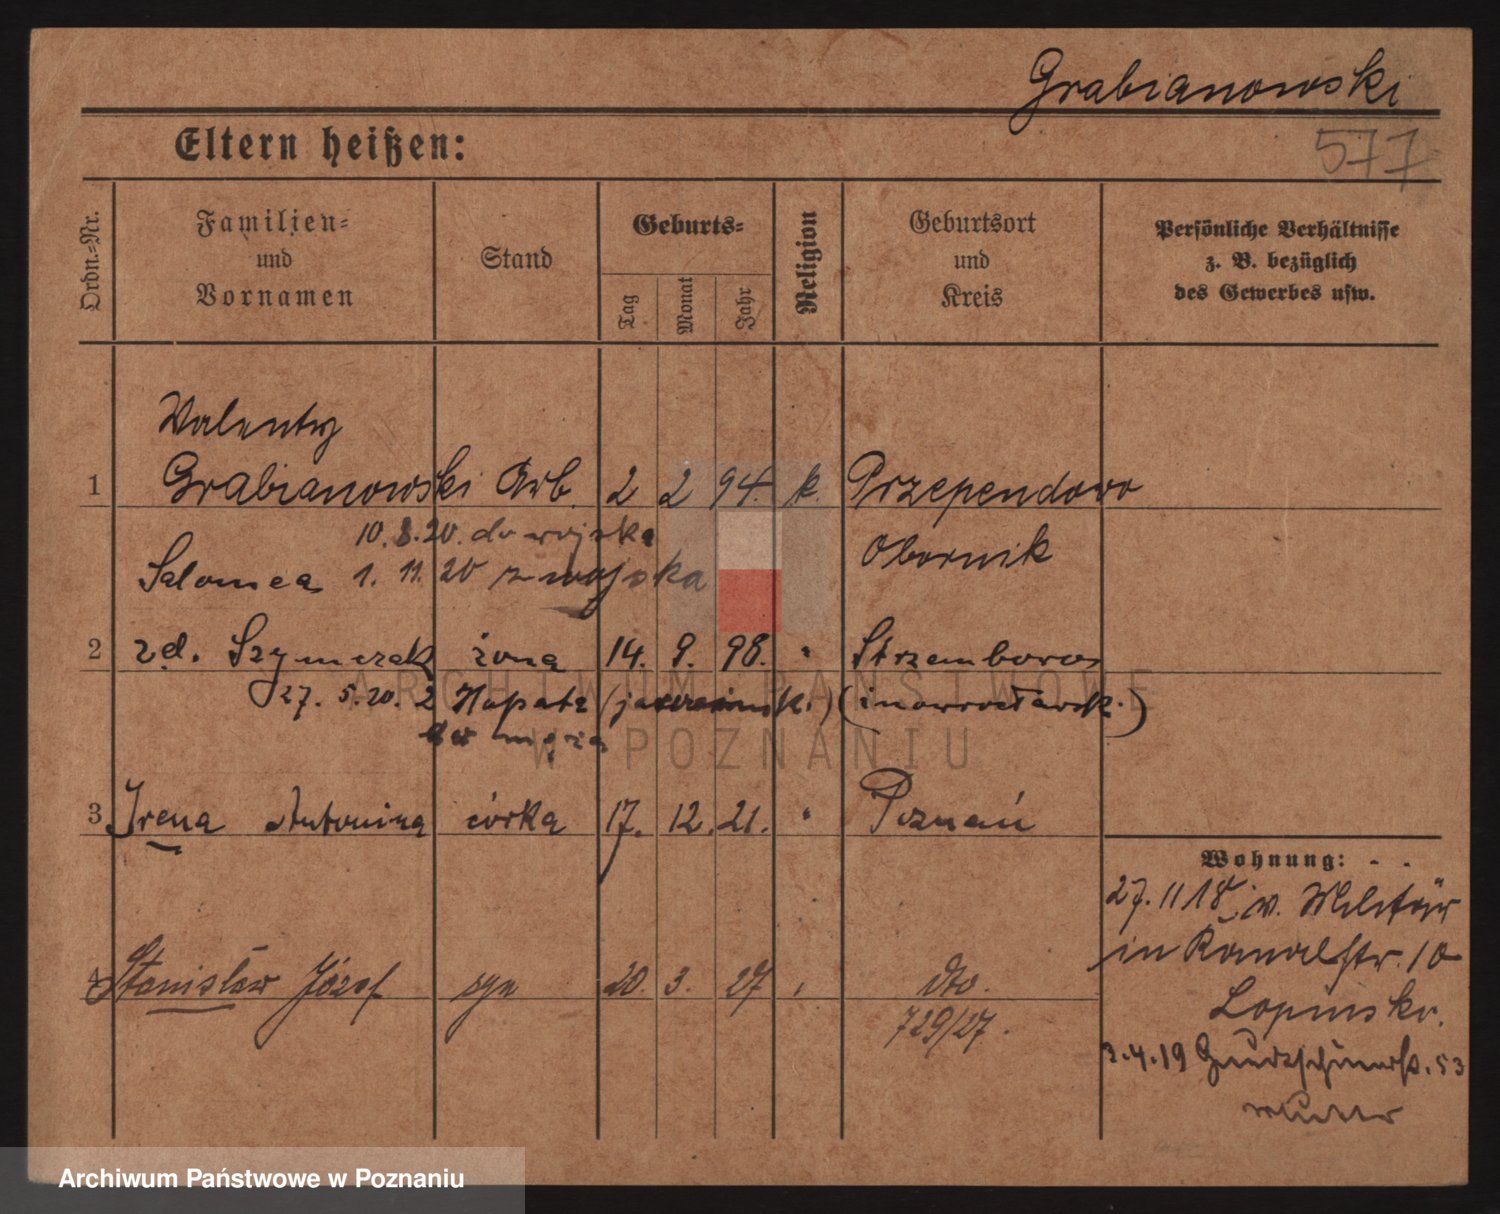 Grabianowski
577
Eltern heißen:
Ordn.-Nr.
Familien- und Vornamen
Stand
Geburts-
Tag
Monat
Jahr
Religion
Geburtsort und Kreis
Persönliche Verhältnisse z. B. bezüglich des Gewerbes usw.
Walenty
1 Grabianowski Arb. 2 2 94. k. Przependowo
10.8.20. do wojska
Obornik
Salomea 1. 11. 20 z wojska
2 zd. Szymczak żona 14. 9. 98. " Strzemborowo
27. 5. 20. z (inowrocławsk.)
męża
3 Irena Antonina córka 17. 12. 21. " Poznań
Wohnung:
27. 11 18 v. Militär
in Kanalstr. 10
4 Stanisław Józef syn 20. 3. 27 " dto.
729/27.
3.4.19 53
Archiwum Państwowe w Poznaniu
ARCHIWUM PAŃSTWOWE
W POZNANIU